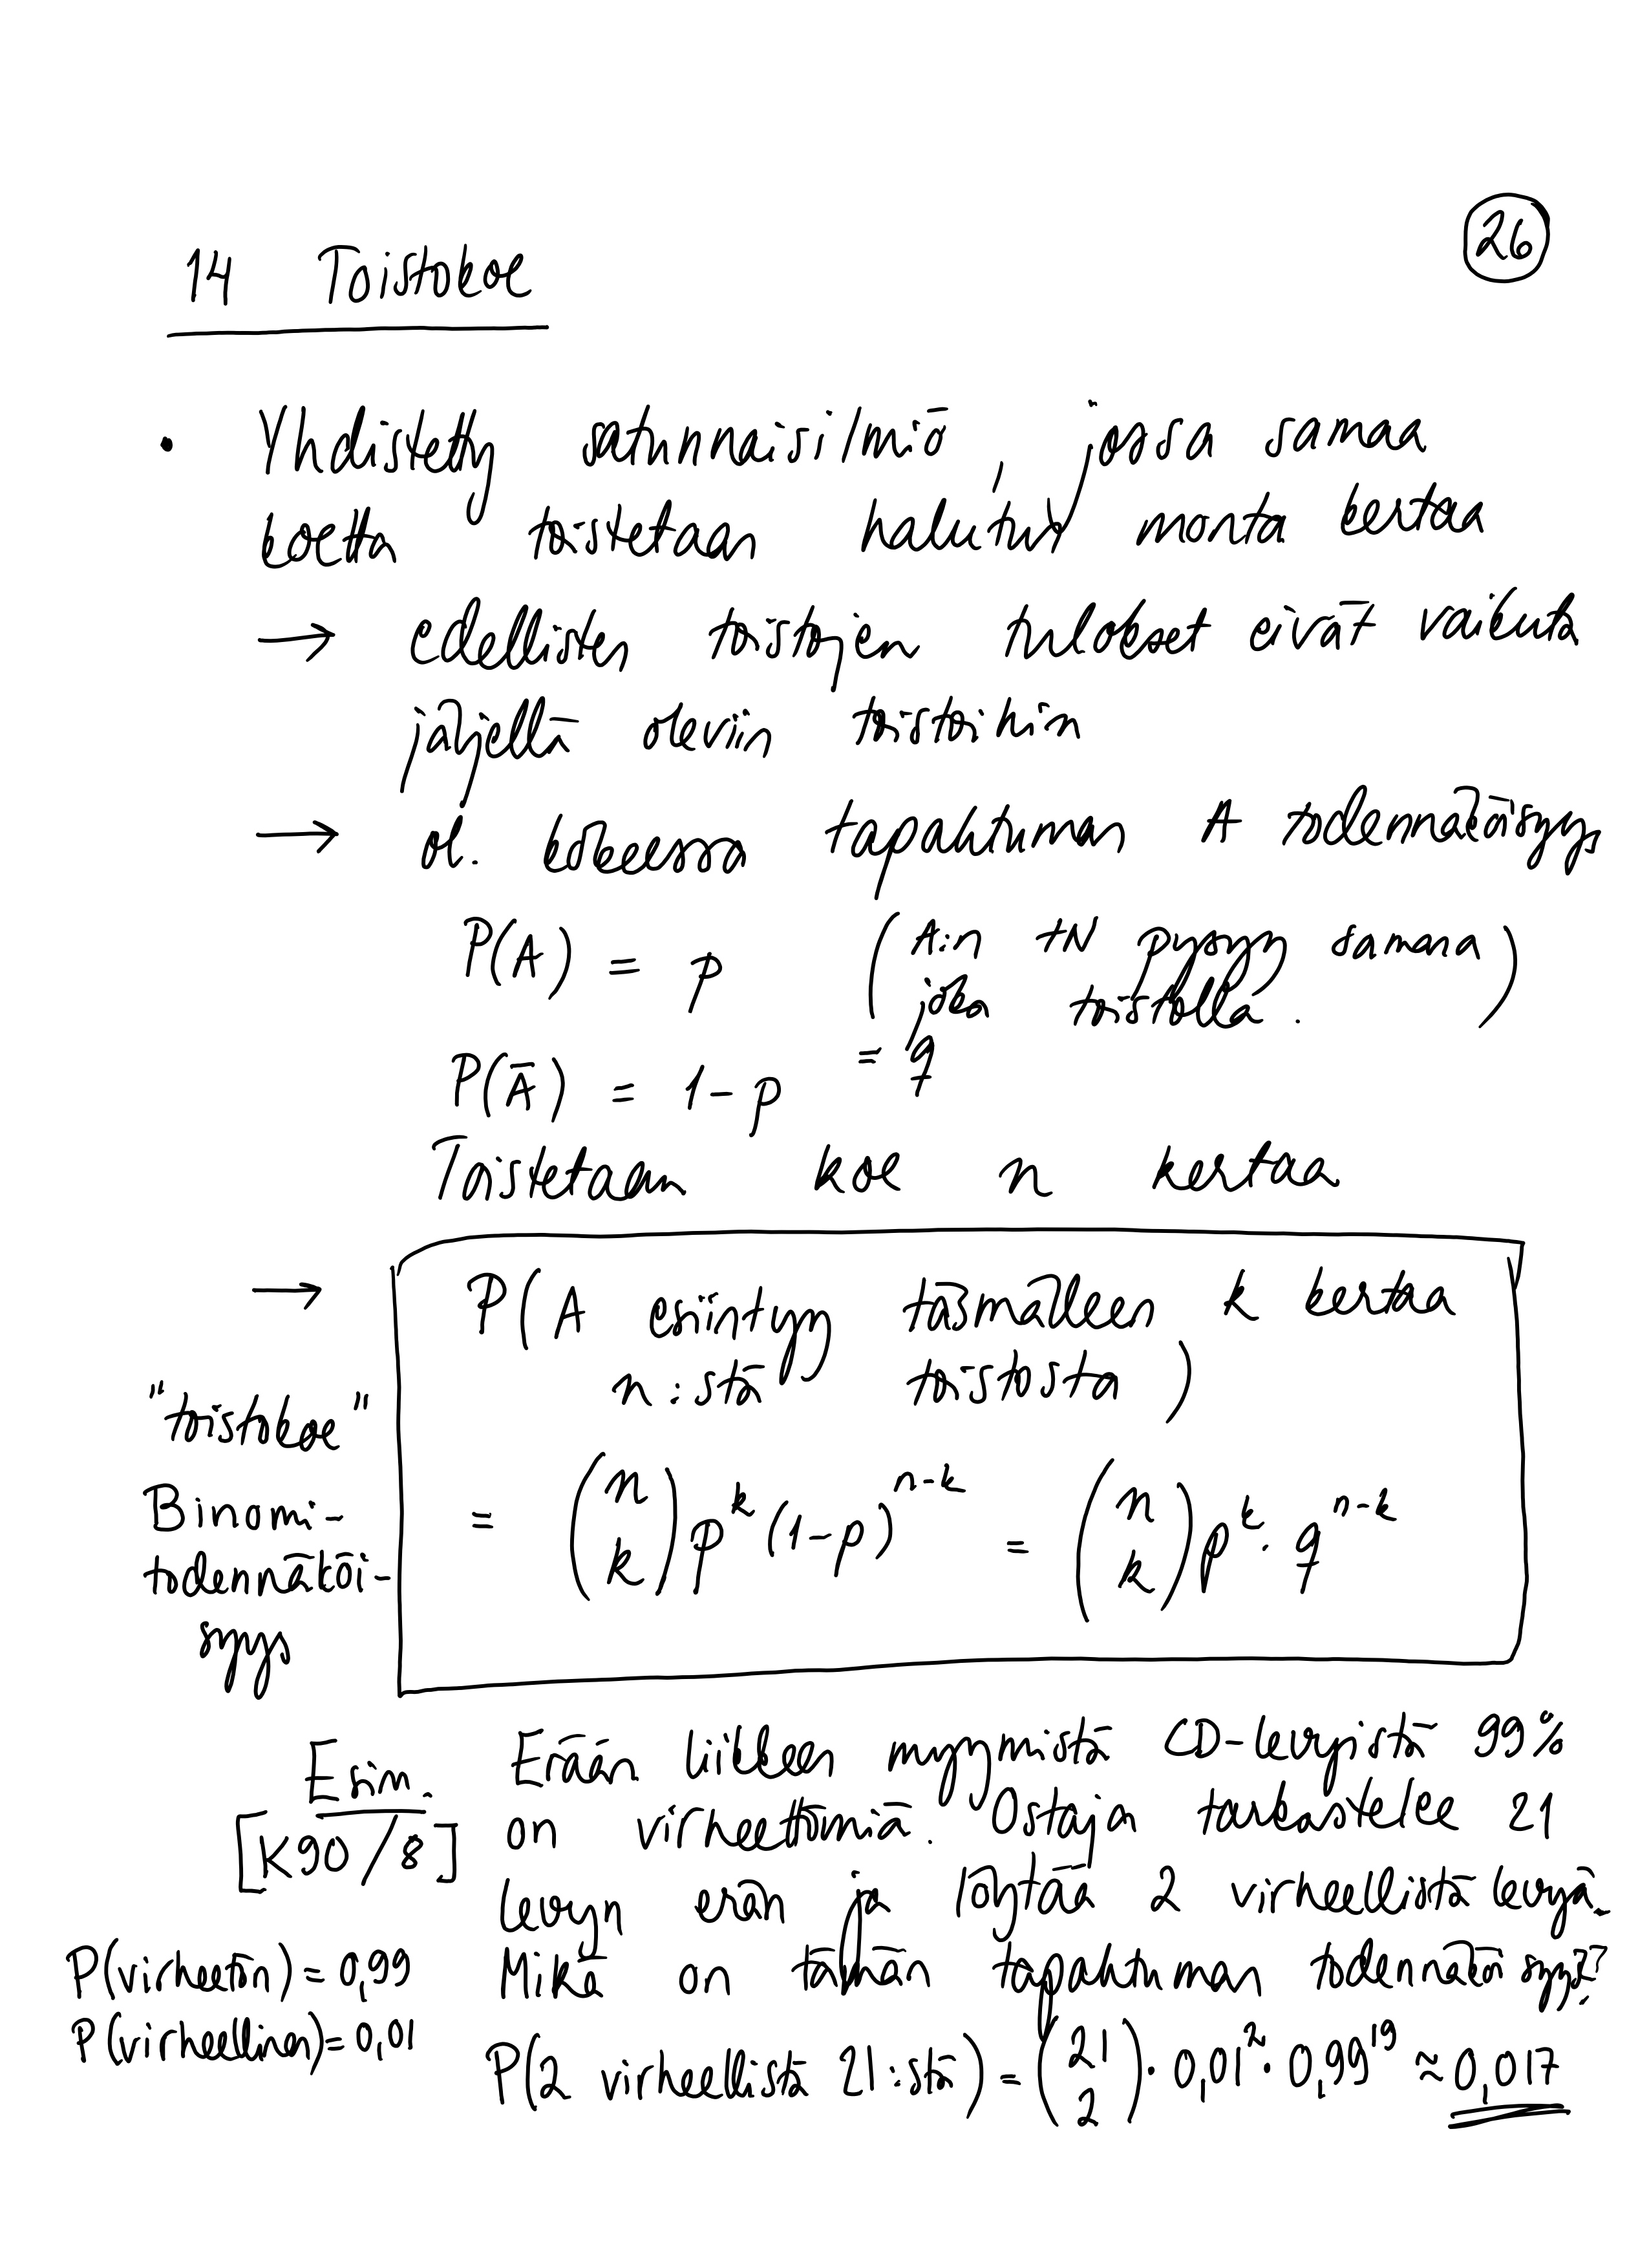 26
14 Toistokoe
• Yhdistetty satunnaisilmiö, jossa samaa
koetta toistetaan halutun monta kertaa
→ edellisten toistojen tulokset eivät vaikuta
järjellä oleviin toistoihin
→ ol. kokeessa tapahtuman A todennäköisyys
P(A) = p (A:n tN pysyy samana
joka toistolla.)
P(Ā) = 1-p = q
Toistetaan koe n kertaa
→ P(A esiintyy täsmälleen k kertaa
n:stä toistosta)
"toistokoe"
= (n k) p^k (1-p)^(n-k) = (n k) p^k · q^(n-k)
Binomi-
todennäköi-
syys
Esim. Erään liikkeen myymistä CD-levyistä 99%
[K90/8] on virheettömiä. Ostaja tarkastelee 21
levyn erän ja löytää 2 virheellistä levyä.
P(virheetön) = 0,99 Mikä on tämän tapahtuman todennäköisyys?
P(virheellinen) = 0,01
P(2 virheellistä 21:stä) = (21 2) · 0,01² · 0,99¹⁹ ≈ 0,017